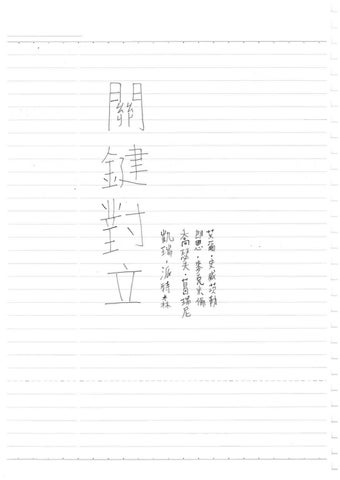 關鍵對立
凱瑞·派特森
喬瑟夫·葛瑞尼
朗恩·麥克米倫
艾爾·史威茨勒